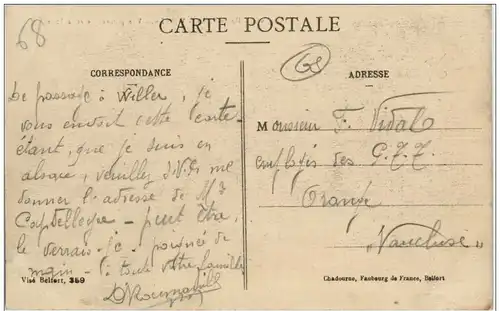 68
CARTE POSTALE
68
CORRESPONDANCE
De passage à Willer, je
vous envoit cette carte
étant, que je suis en
alsace, veuillez me
donner l'adresse de Mr
peut être
le verrais-je - poignée de
main - à toute votre famille
Visé Belfort, 359
ADRESSE
Monsieur F. Vidal
employé des
Orange
"Vaucluse"
Chadourne, Faubourg de France, Belfort